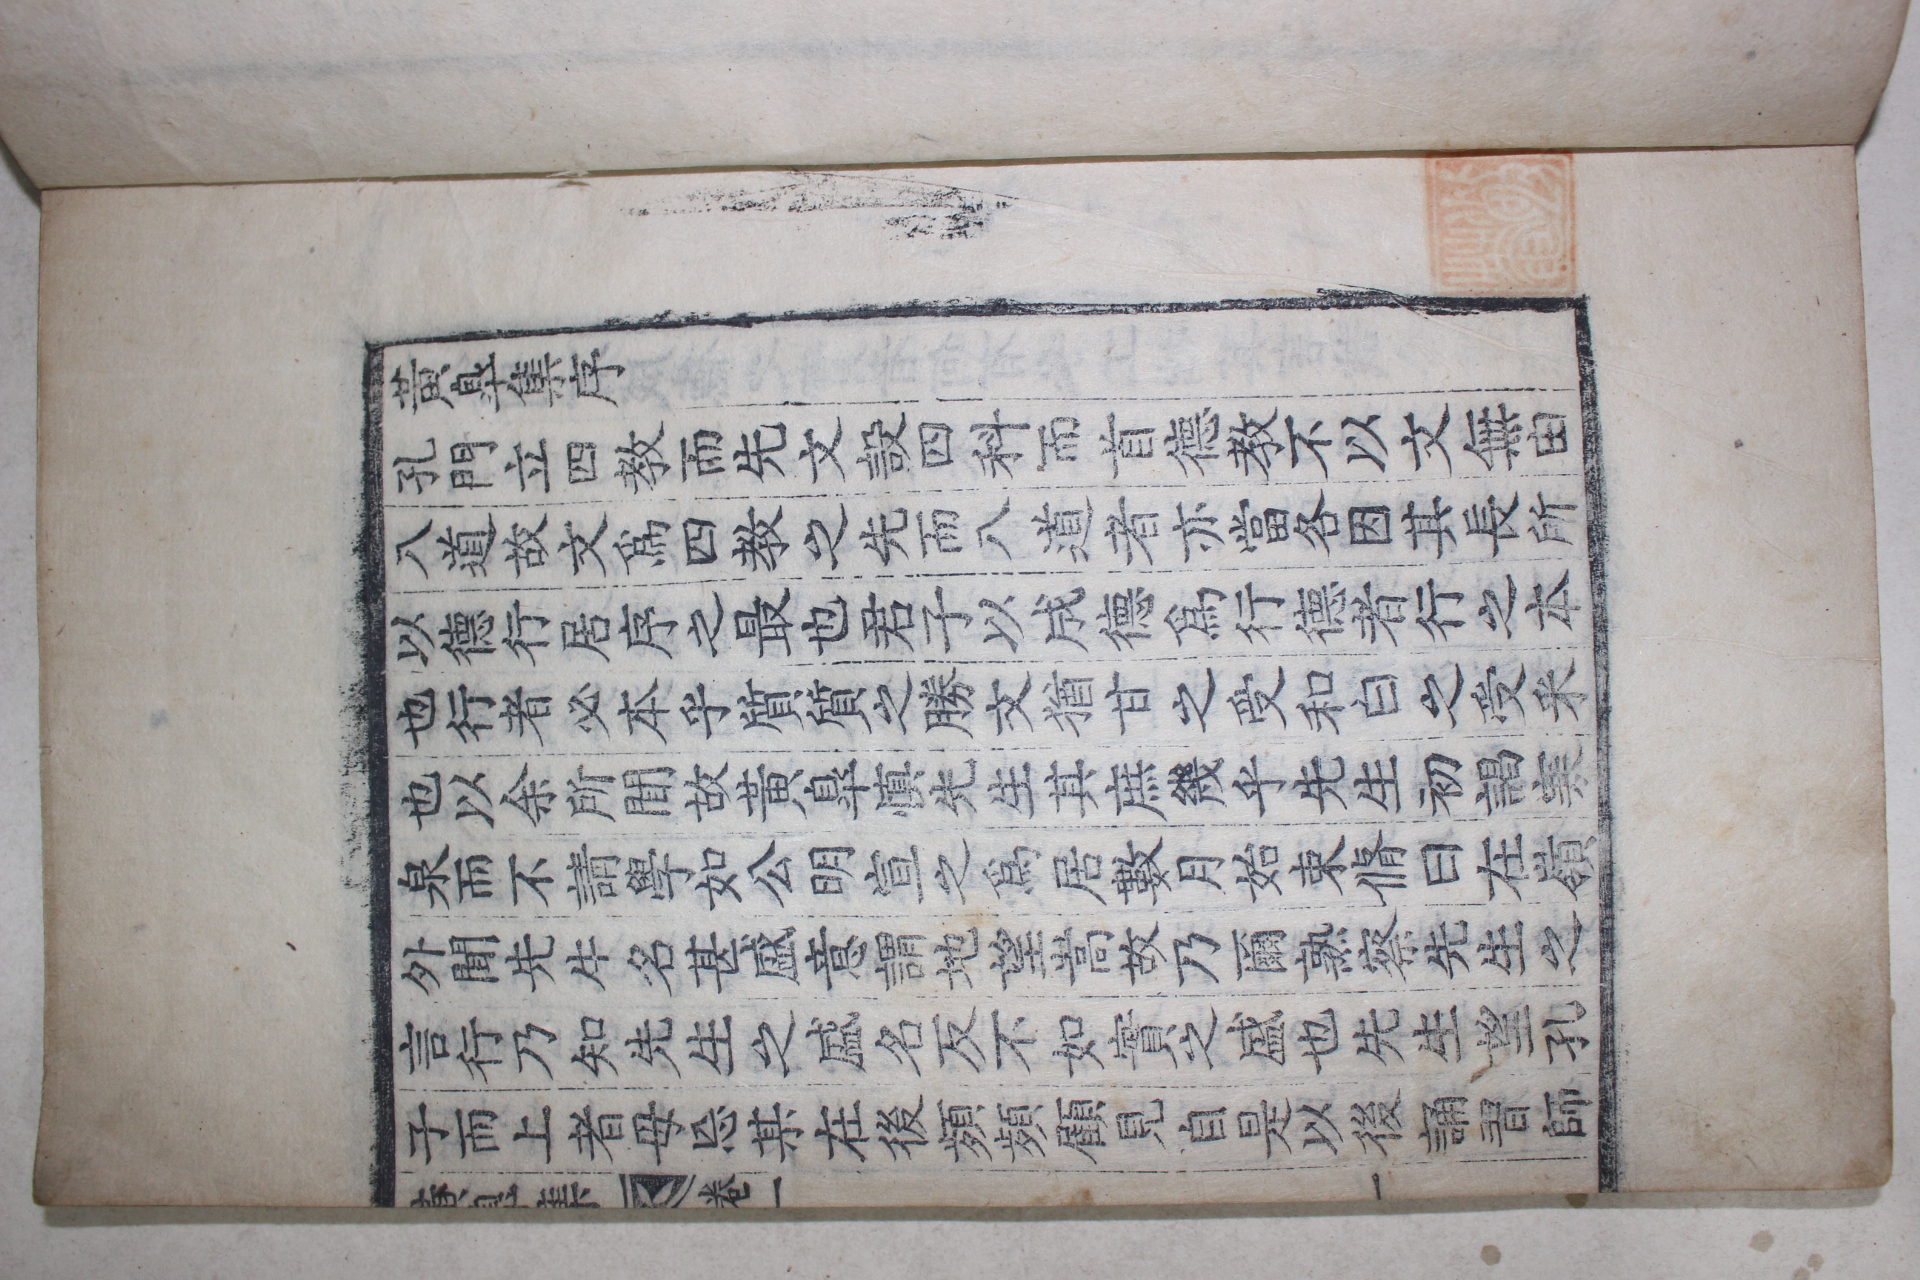 黃皐集序
孔門立四教而先文設四科而首德教不以文無由
入道故文爲四教之先而入道者亦當各因其長所
以德行居序之最也君子以成德爲行德者行之本
也行者必本乎質質之勝文猶甘之受和白之受采
也以余所聞故黃皐愼先生其庶幾乎先生初謁寒
泉而不請學如公明宣之爲居數月始束脩曰在嶺
外聞先生名甚盛意謂地望高故乃爾熟察先生之
言行乃知先生之盛名反不如實之盛也先生望孔
子而上者毋恐某在後頻頻顧見自是以後誦習師
黃皐集 卷一 一